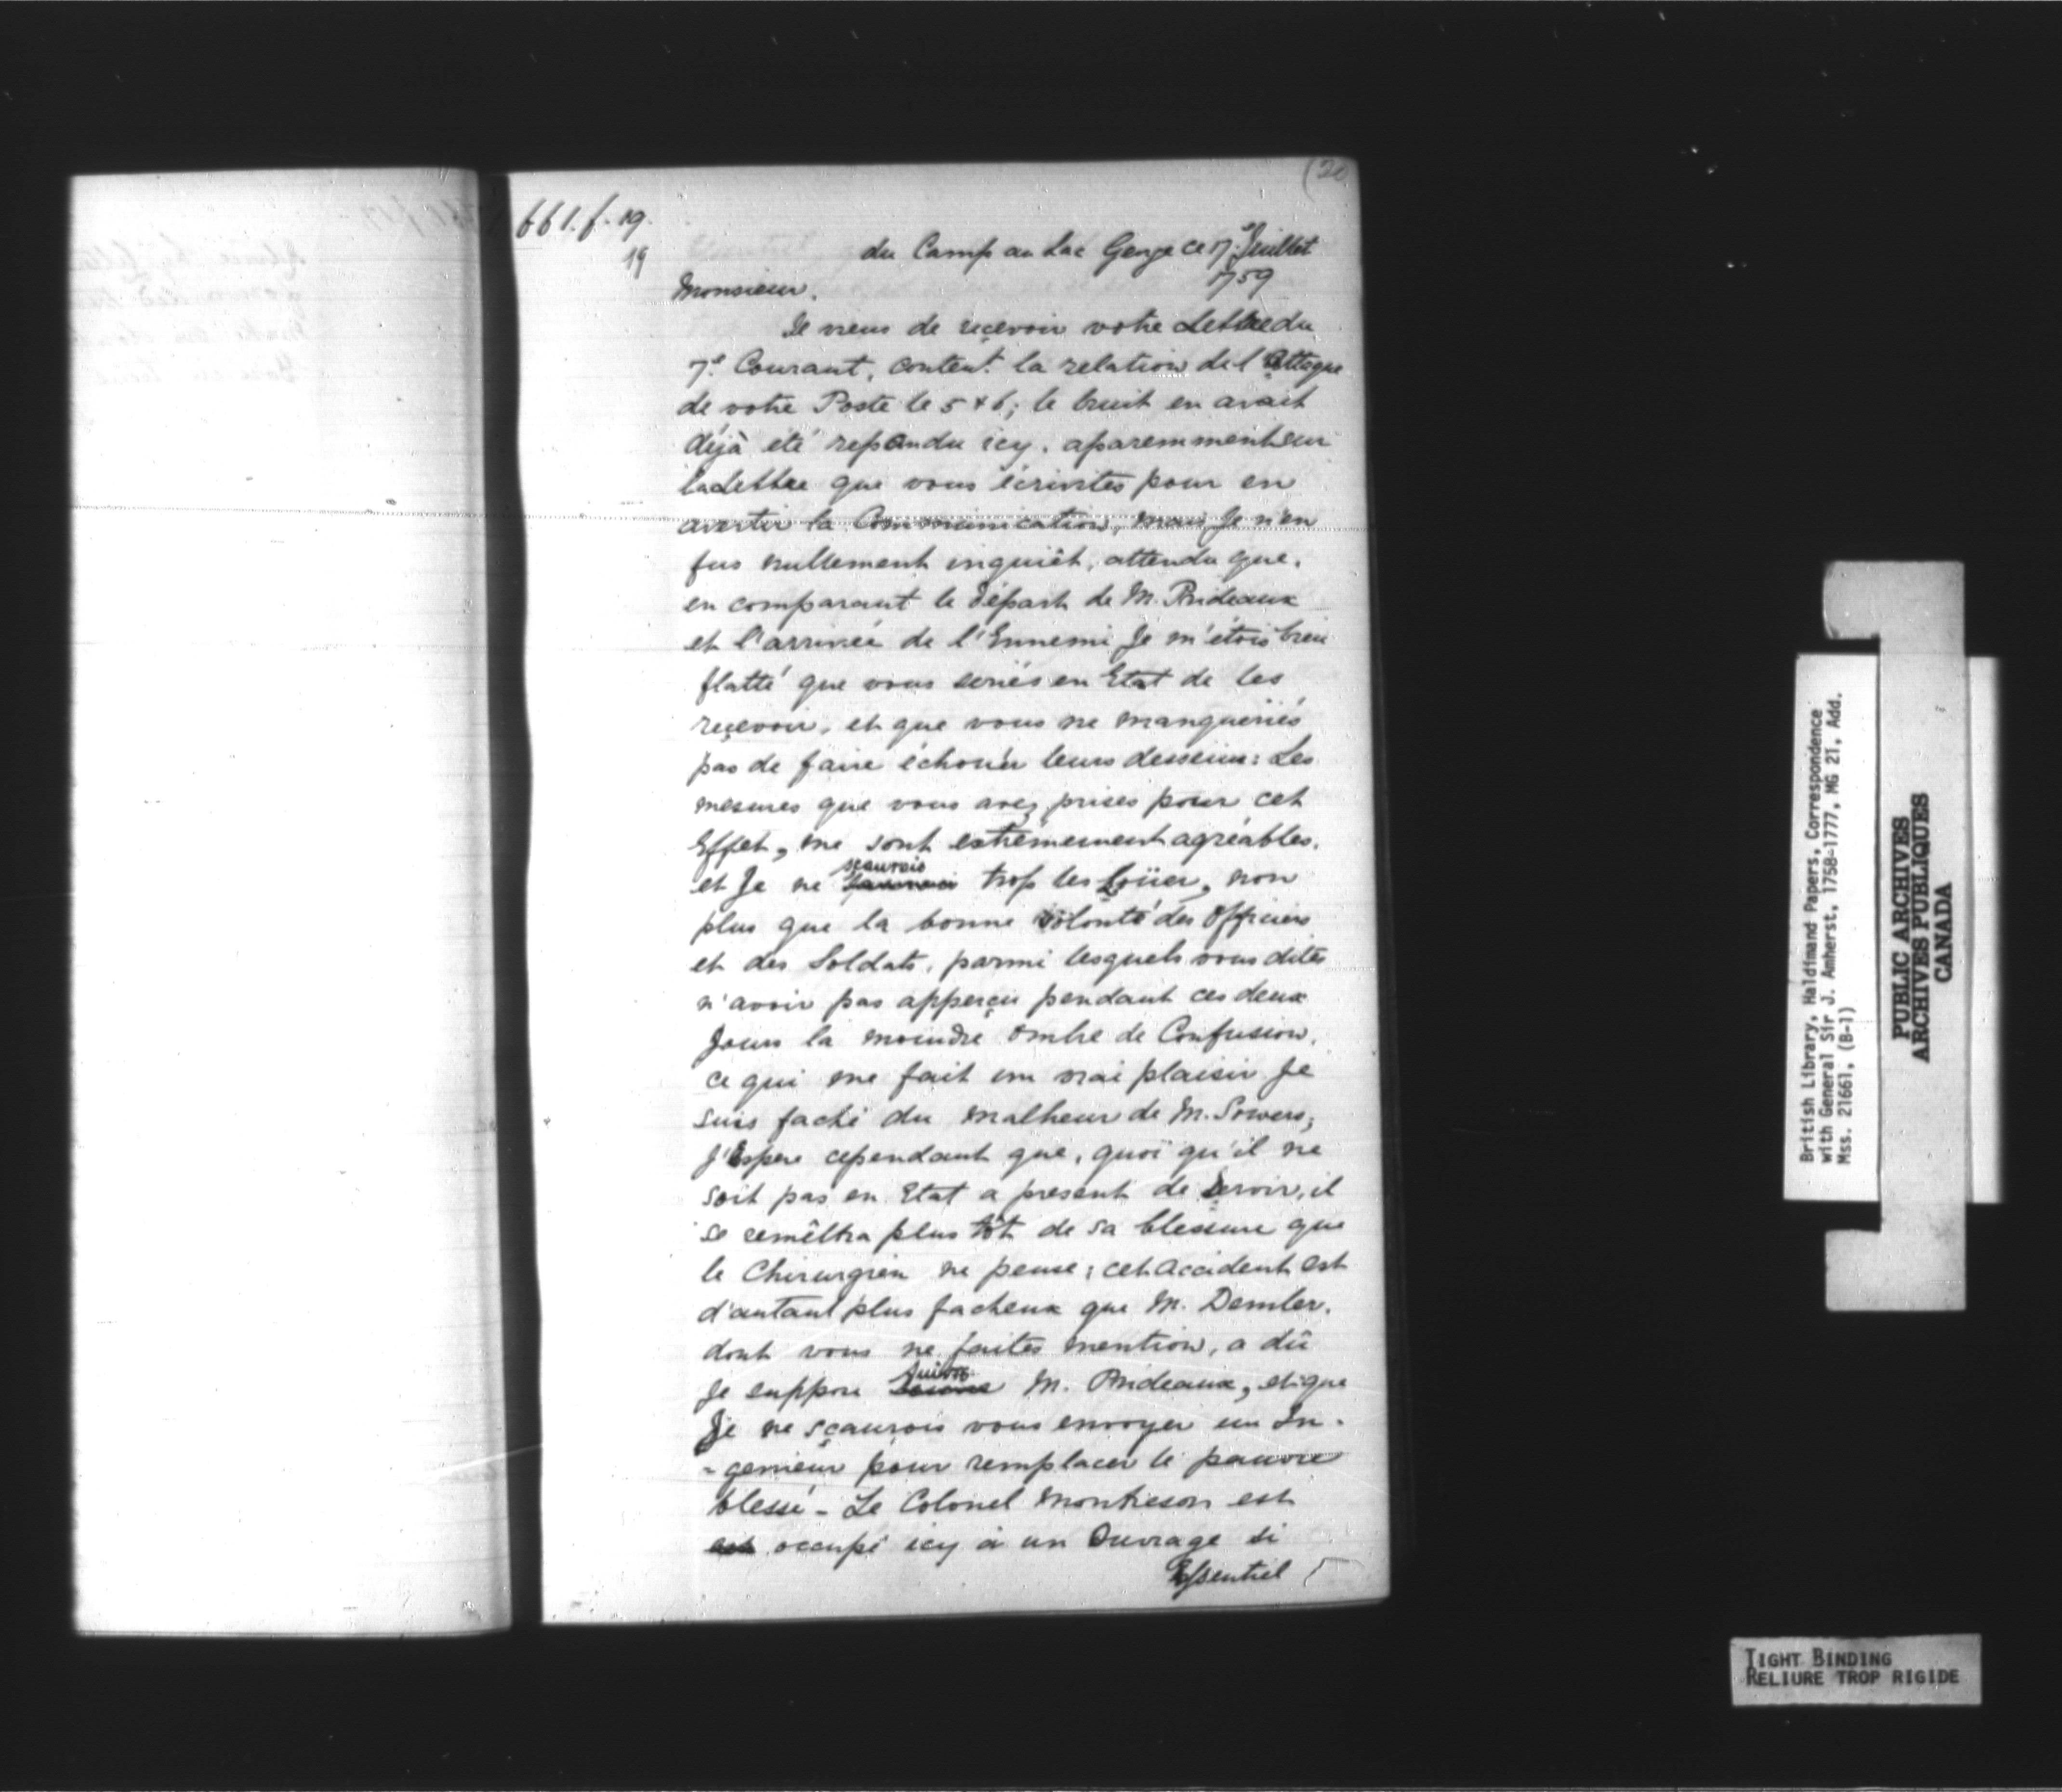 (20
661.f.19.
19
du Camp au Lac George ce 17e Juillet
1759
Monsieur.
Je viens de reçevoir votre Lettre du
7e Courant, content. la relation de l'Attaque
de votre Poste le 5 & 6; le bruit en avait
déjà été repandu icy. aparemment sur
la Lettre que vous écrivites pour en
avertir la Communication, mais Je n'en
fus nullement inquiêt, attendu que,
en comparant le départ de M. Prideaux
et l'arrivée de l'Ennemi Je m'étois bien
flatté que vous seriés en Etat de les
reçevoir, et que vous ne manqueriés
pas de faire échouër leurs desseins: Les
mesures que vous avez prises pour cet
Effet, me sont extrêmement agréables.
et Je ne sçaurois trop les Loüer, non
plus que la bonne volonté des Officiers
et des Soldats, parmi lesquels vous dites
n'avoir pas apperçu pendant ces deux
Jours la moindre ombre de Confusion,
ce qui me fait un vrai plaisir Je
suis faché du malheur de M. Sowers;
J'Espere cependant que, quoi qu'il ne
soit pas en Etat a present de Servir, il
se remêttra plus tôt de sa blessure que
le Chirurgien ne pense; cet accident est
d'autant plus facheux que M. Demler.
dont vous ne faites mention, a dû
Je suppose suivre M. Prideaux, et que
Je ne sçaurois vous envoyer un In-
-genieur pour remplacer le pauvre
blessé - Le Colonel Montreson est
est occupé icy à un Ouvrage si
Essentiel
British Library, Haldimand Papers, Correspondence
with General Sir J. Amherst, 1758-1777, MG 21, Add.
Mss. 21661, (B-1)
PUBLIC ARCHIVES
ARCHIVES PUBLIQUES
CANADA
TIGHT BINDING
RELIURE TROP RIGIDE